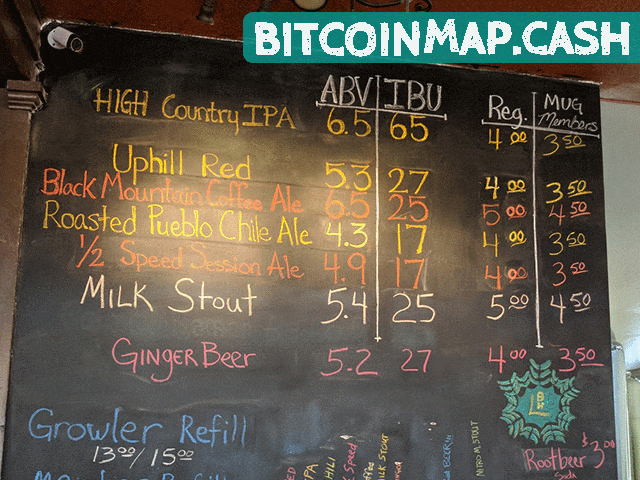 BITCOINMAP.CASH
ABV IBU Reg. MUG Members
HIGH Country IPA 6.5 65 4 00 3 50
Uphill Red 5.3 27 4 00 3 50
Black Mountain Coffee Ale 6.5 25 5 00 4 50
Roasted Pueblo Chile Ale 4.3 17 4 00 3 50
1/2 Speed Session Ale 4.9 17 4 00 3 50
MILK Stout 5.4 25 5 00 4 50
GINGER Beer 5.2 27 4 00 3 50
Growler Refill
13 00 / 15 00
Rootbeer $3.00
Soda
NITRO M. STOUT
MILK STOUT
Speed
CHILI
IPA
RED